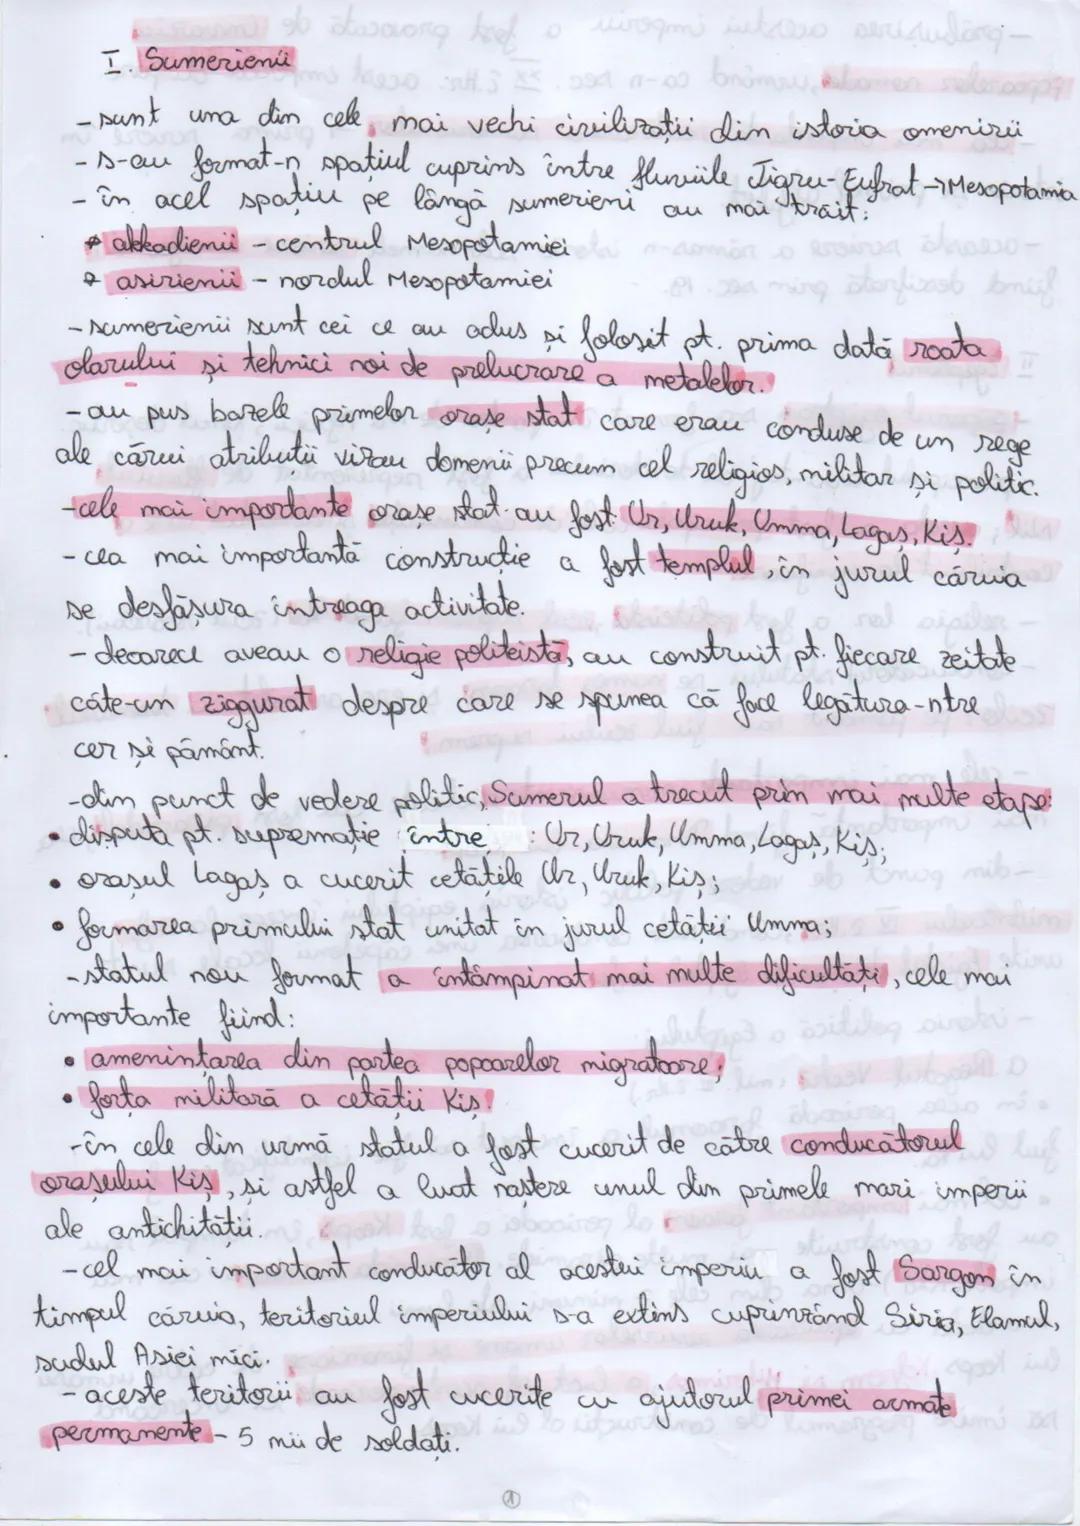 I. Sumerienii
- sunt una din cele mai vechi civilizații din istoria omenirii
- s-au format-n spațiul cuprins între fluviile Tigru-Eufrat → Mesopotamia
- în acel spațiu pe lângă sumerieni au mai trait:
* akkadienii - centrul Mesopotamiei
* asirienii - nordul Mesopotamiei
- sumerienii sunt cei ce au adus și folosit pt. prima dată roata
olarului și tehnici noi de prelucrare a metalelor.
- au pus bazele primelor orașe stat care erau conduse de un rege
ale cărui atribuții vizau domenii precum cel religios, militar și politic.
- cele mai importante orașe stat au fost Ur, Uruk, Umma, Lagaș, Kiș.
- cea mai importantă construcție a fost templul, în jurul căruia
se desfășura întreaga activitate.
- deoarece aveau o religie politeistă, au construit pt. fiecare zeitate
câte-un ziggurat despre care se spunea că face legătura-ntre
cer și pământ.
- din punct de vedere politic, Sumerul a trecut prin mai multe etape:
• disputa pt. supremație între : Ur, Uruk, Umma, Lagaș, Kiș;
• orașul Lagaș a cucerit cetățile Ur, Uruk, Kiș;
• formarea primului stat unitat în jurul cetății Umma;
- statul nou format a întâmpinat mai multe dificultăți, cele mai
importante fiind:
• amenințarea din partea popoarelor migratoare;
• forța militară a cetății Kiș.
- în cele din urmă statul a fost cucerit de către conducătorul
orașului Kiș, și astfel a luat naștere unul din primele mari imperii
ale antichității.
- cel mai important conducător al acestui imperiu a fost Sargon în
timpul căruia, teritoriul imperiului s-a extins cuprinzând Siria, Elamul,
sudul Asiei mici.
- aceste teritorii au fost cucerite cu ajutorul primei armate
permanente - 5 mii de soldați.
1